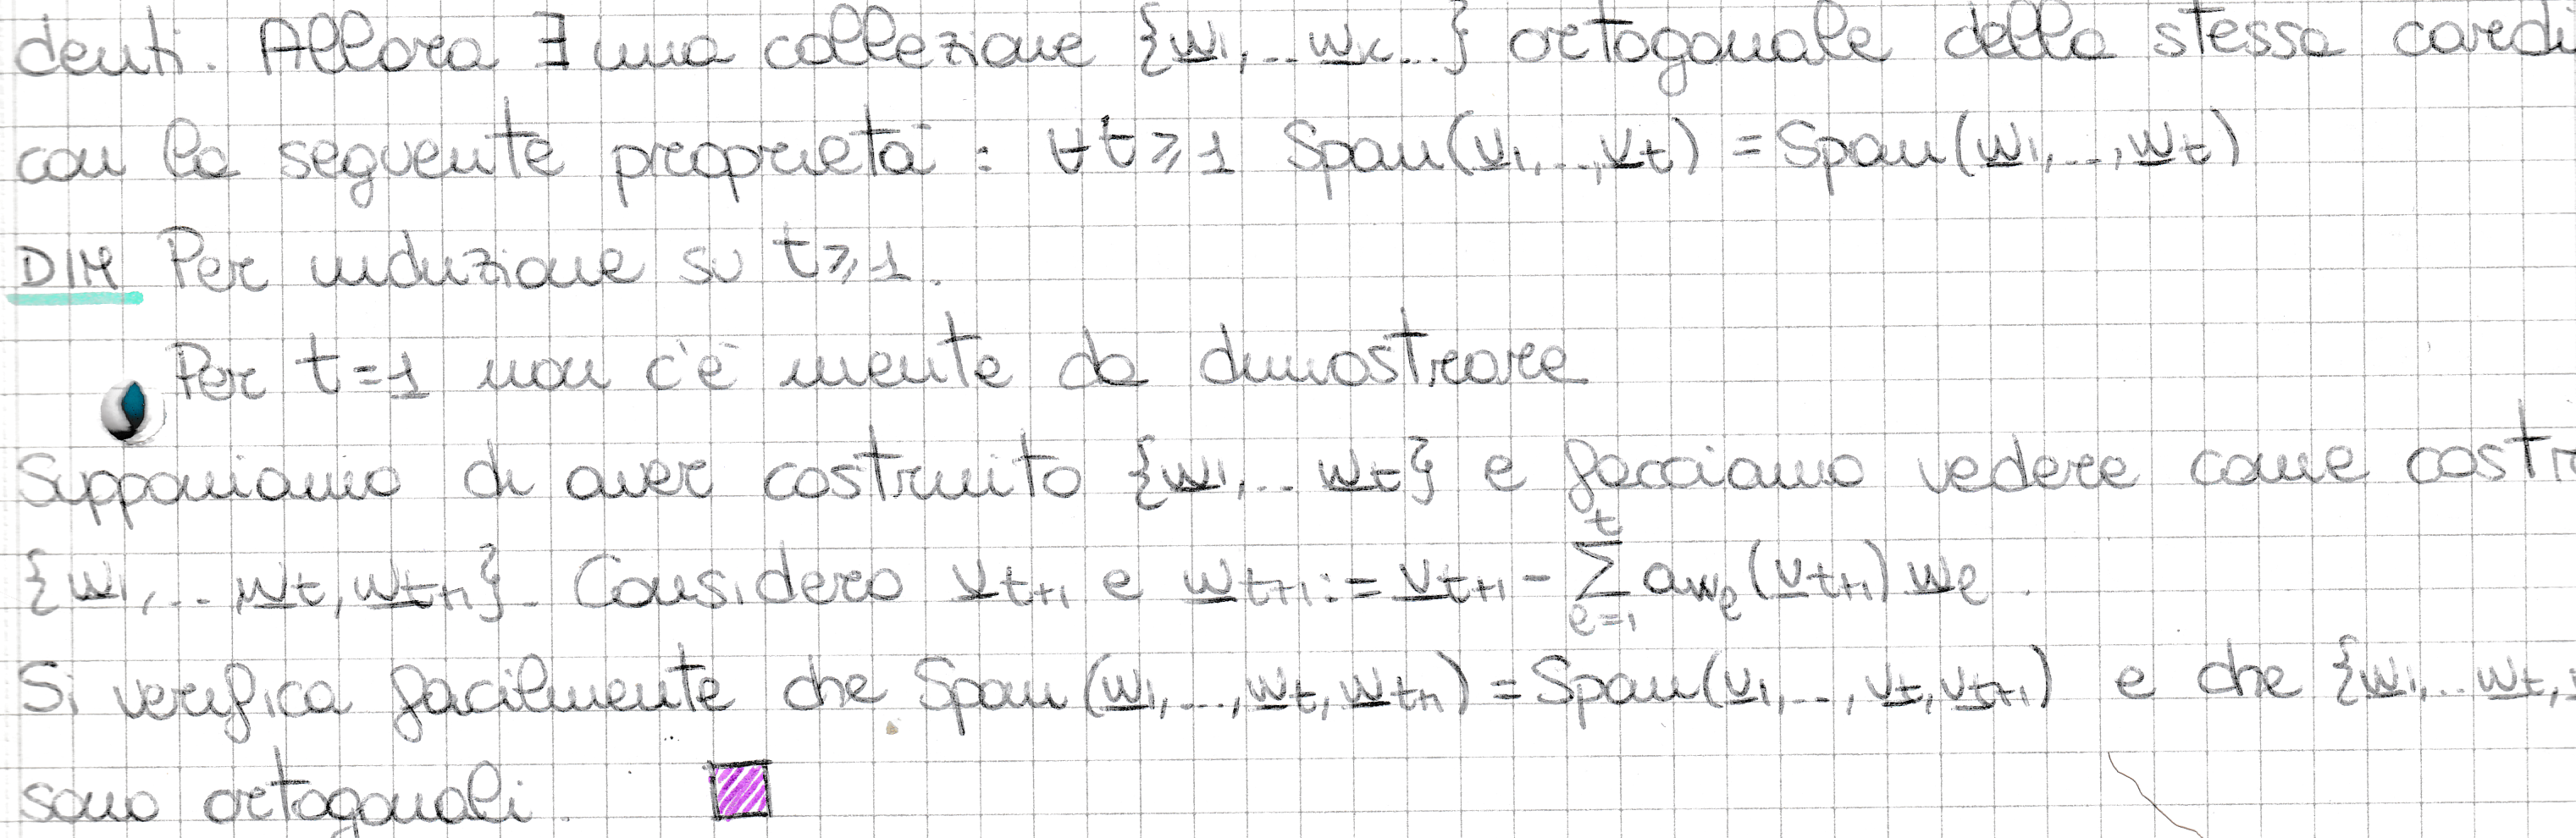 denti. Allora ∃ una collezione {w1, .. wk...} ortogonale della stessa cardi
con la seguente proprietà : ∀t ≥ 1 Span(v1, .., vt) = Span(w1, .., wt)
DIM Per induzione su t ≥ 1.
Per t=1 non c'è niente da dimostrare
Supponiamo di aver costruito {w1, .. wt} e facciamo vedere come costr
{w1, .. , wt, wt+1}. Considero vt+1 e wt+1 := vt+1 - ∑_{l=1}^{t} a_{wl}(vt+1) wl .
Si verifica facilmente che Span (w1, ..., wt, wt+1) = Span(v1, .., vt, vt+1) e che {w1, .. wt,
sono ortogonali.